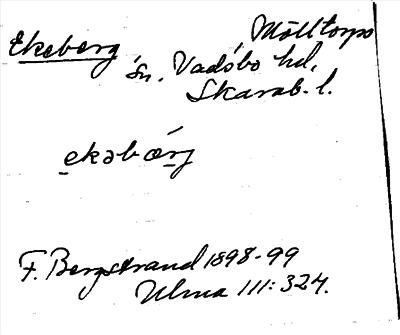 Ekeberg Mölltorps
sn. Vadsbo hd,
Skarab. l.
ekəbærj
F. Bergstrand 1898-99
Ulma 111:324.